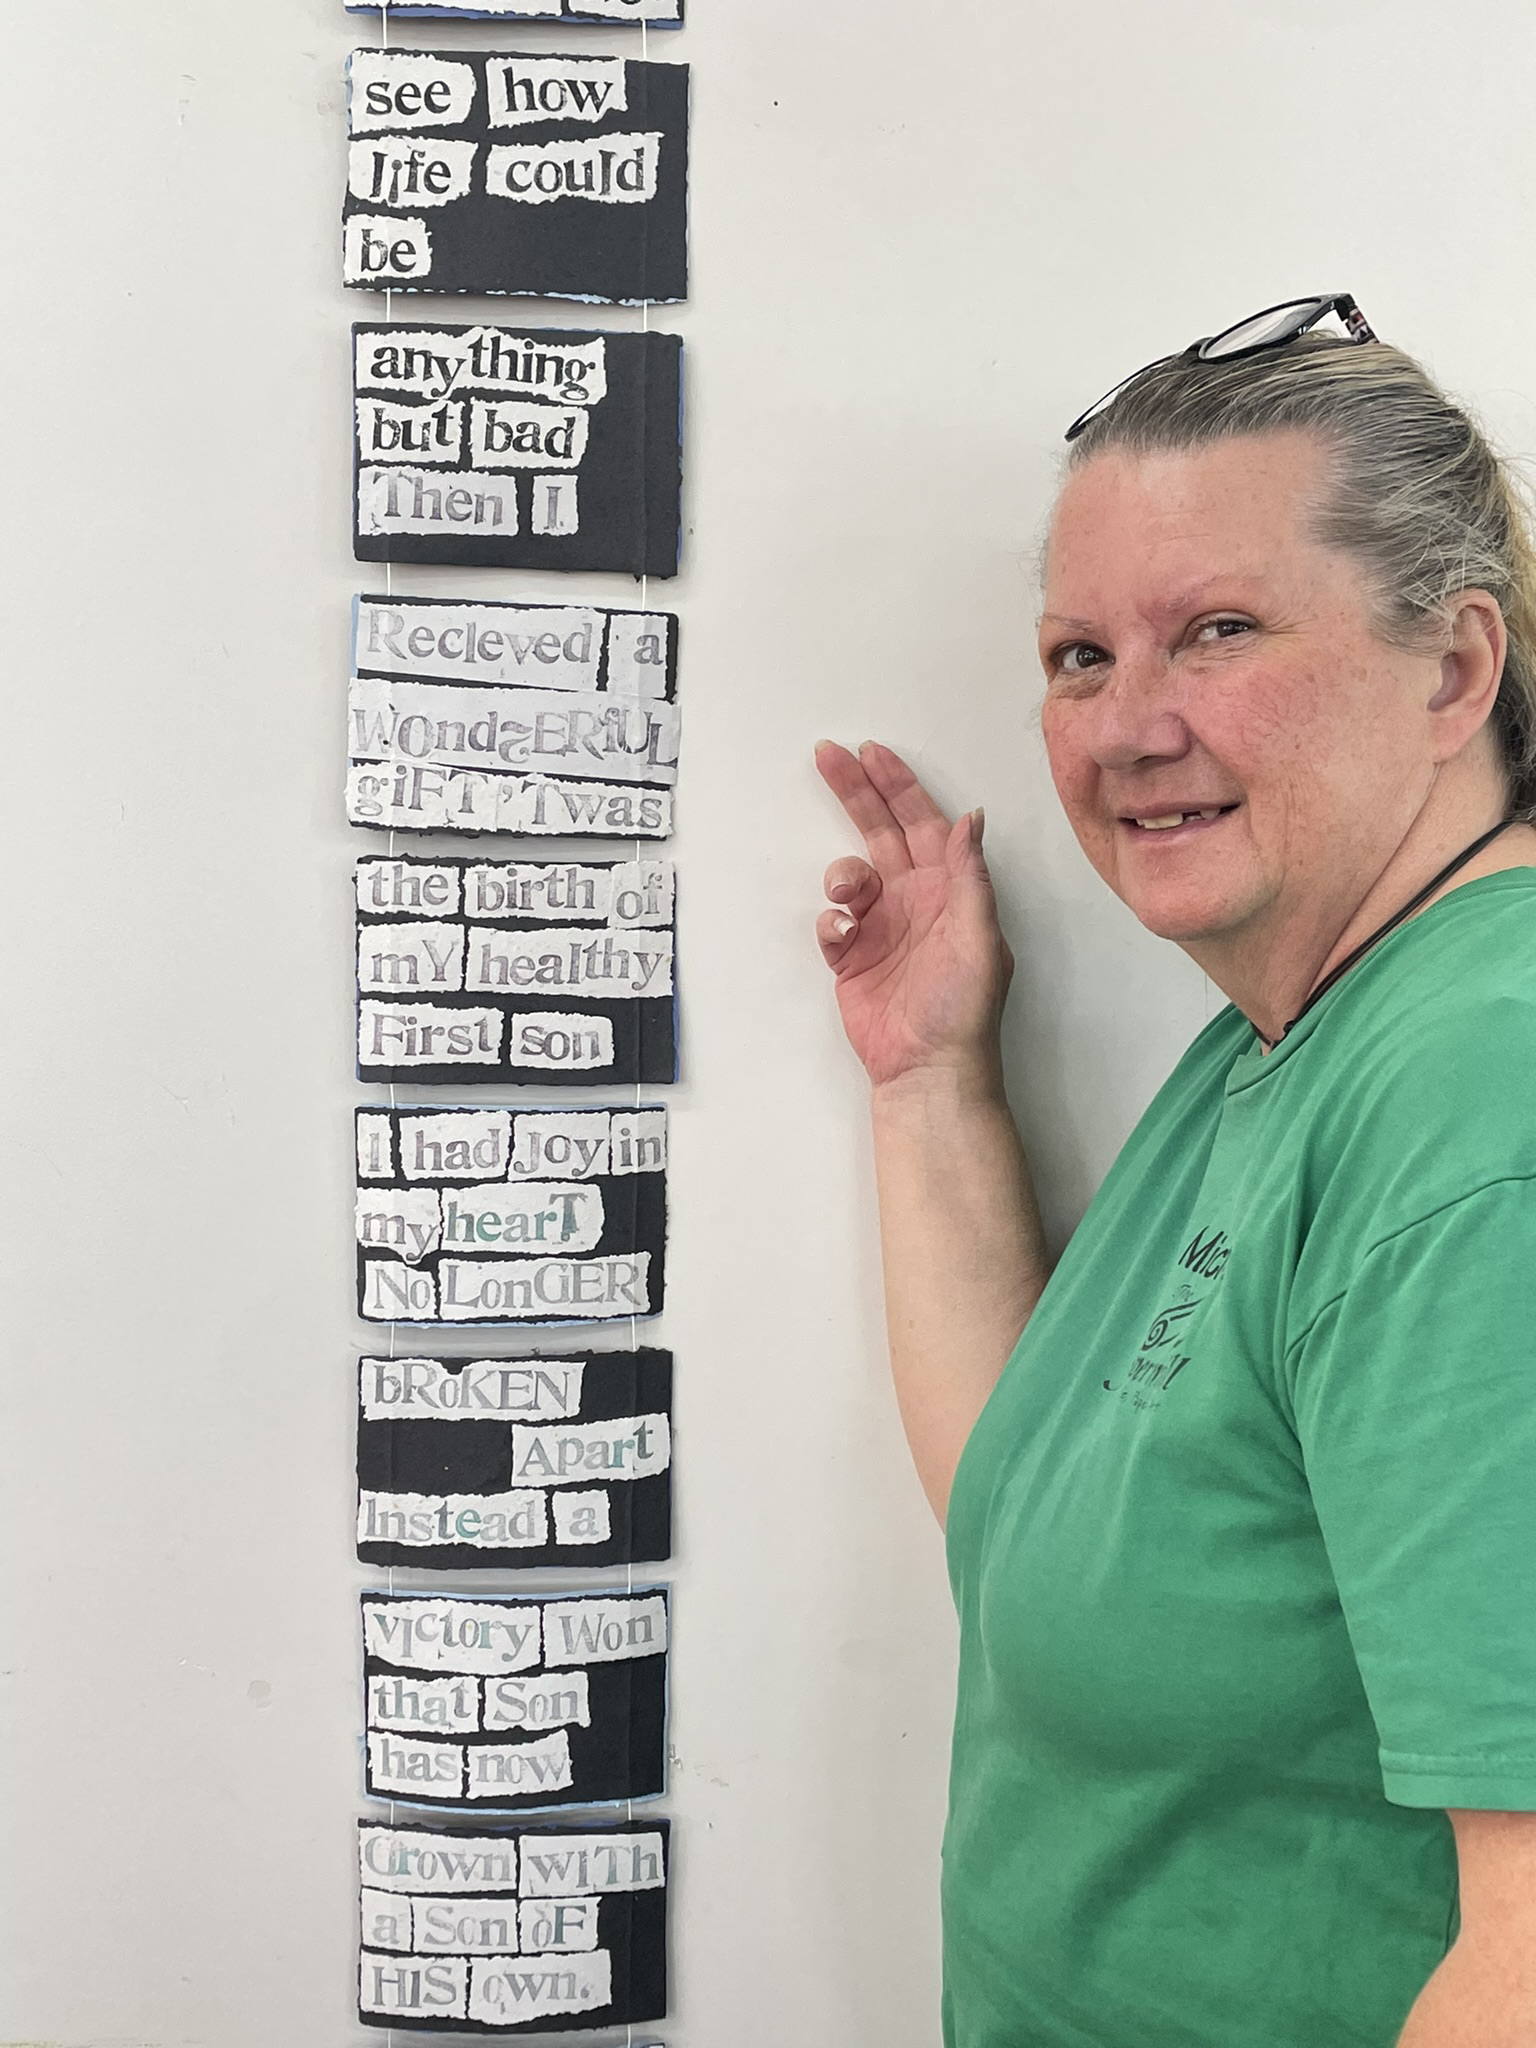 see how
life could
be
anything
but bad
Then I
Recieved a
WOndERfUL
giFT,'Twas
the birth of
mY healthy
First son
I had Joy in
my hearT
No LonGER
bRoKEN
Apart
Instead a
victory Won
that Son
has now
Grown wiTh
a Son oF
HIS own.